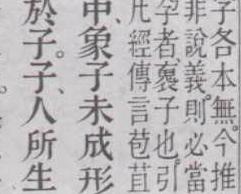 字各本無。今推
非說義則必當
孕者、褢子也。引
凡經傳言苞苴
中、象子未成形
於子。子、人所生